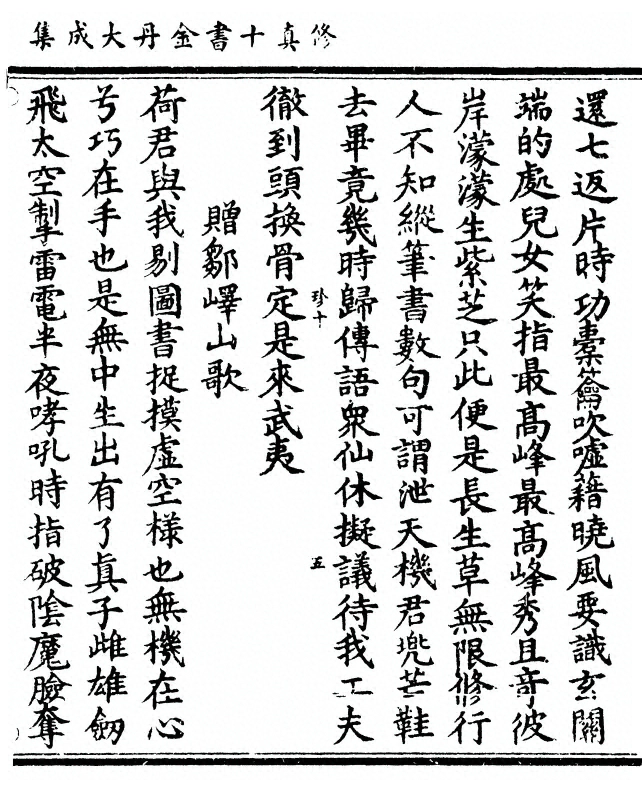 修真十書金丹大成集
還七返片時功橐籥吹噓藉曉風要識玄關
端的處兒女笑指最高峰最高峰秀且竒彼
岸濛濛生紫芝只此便是長生草無限修行
人不知縱筆書數句可謂泄天機君兠芒鞋
去畢竟幾時歸傳語衆仙休擬議待我工夫
珍十
五
徹到頭換骨定是來武夷
贈鄒嶧山歌
荷君與我剔圖書捉摸虛空樣也無機在心
兮巧在手也是無中生出有了真子雌雄劒
飛太空掣雷電半夜哮吼時指破陰魔臉奪